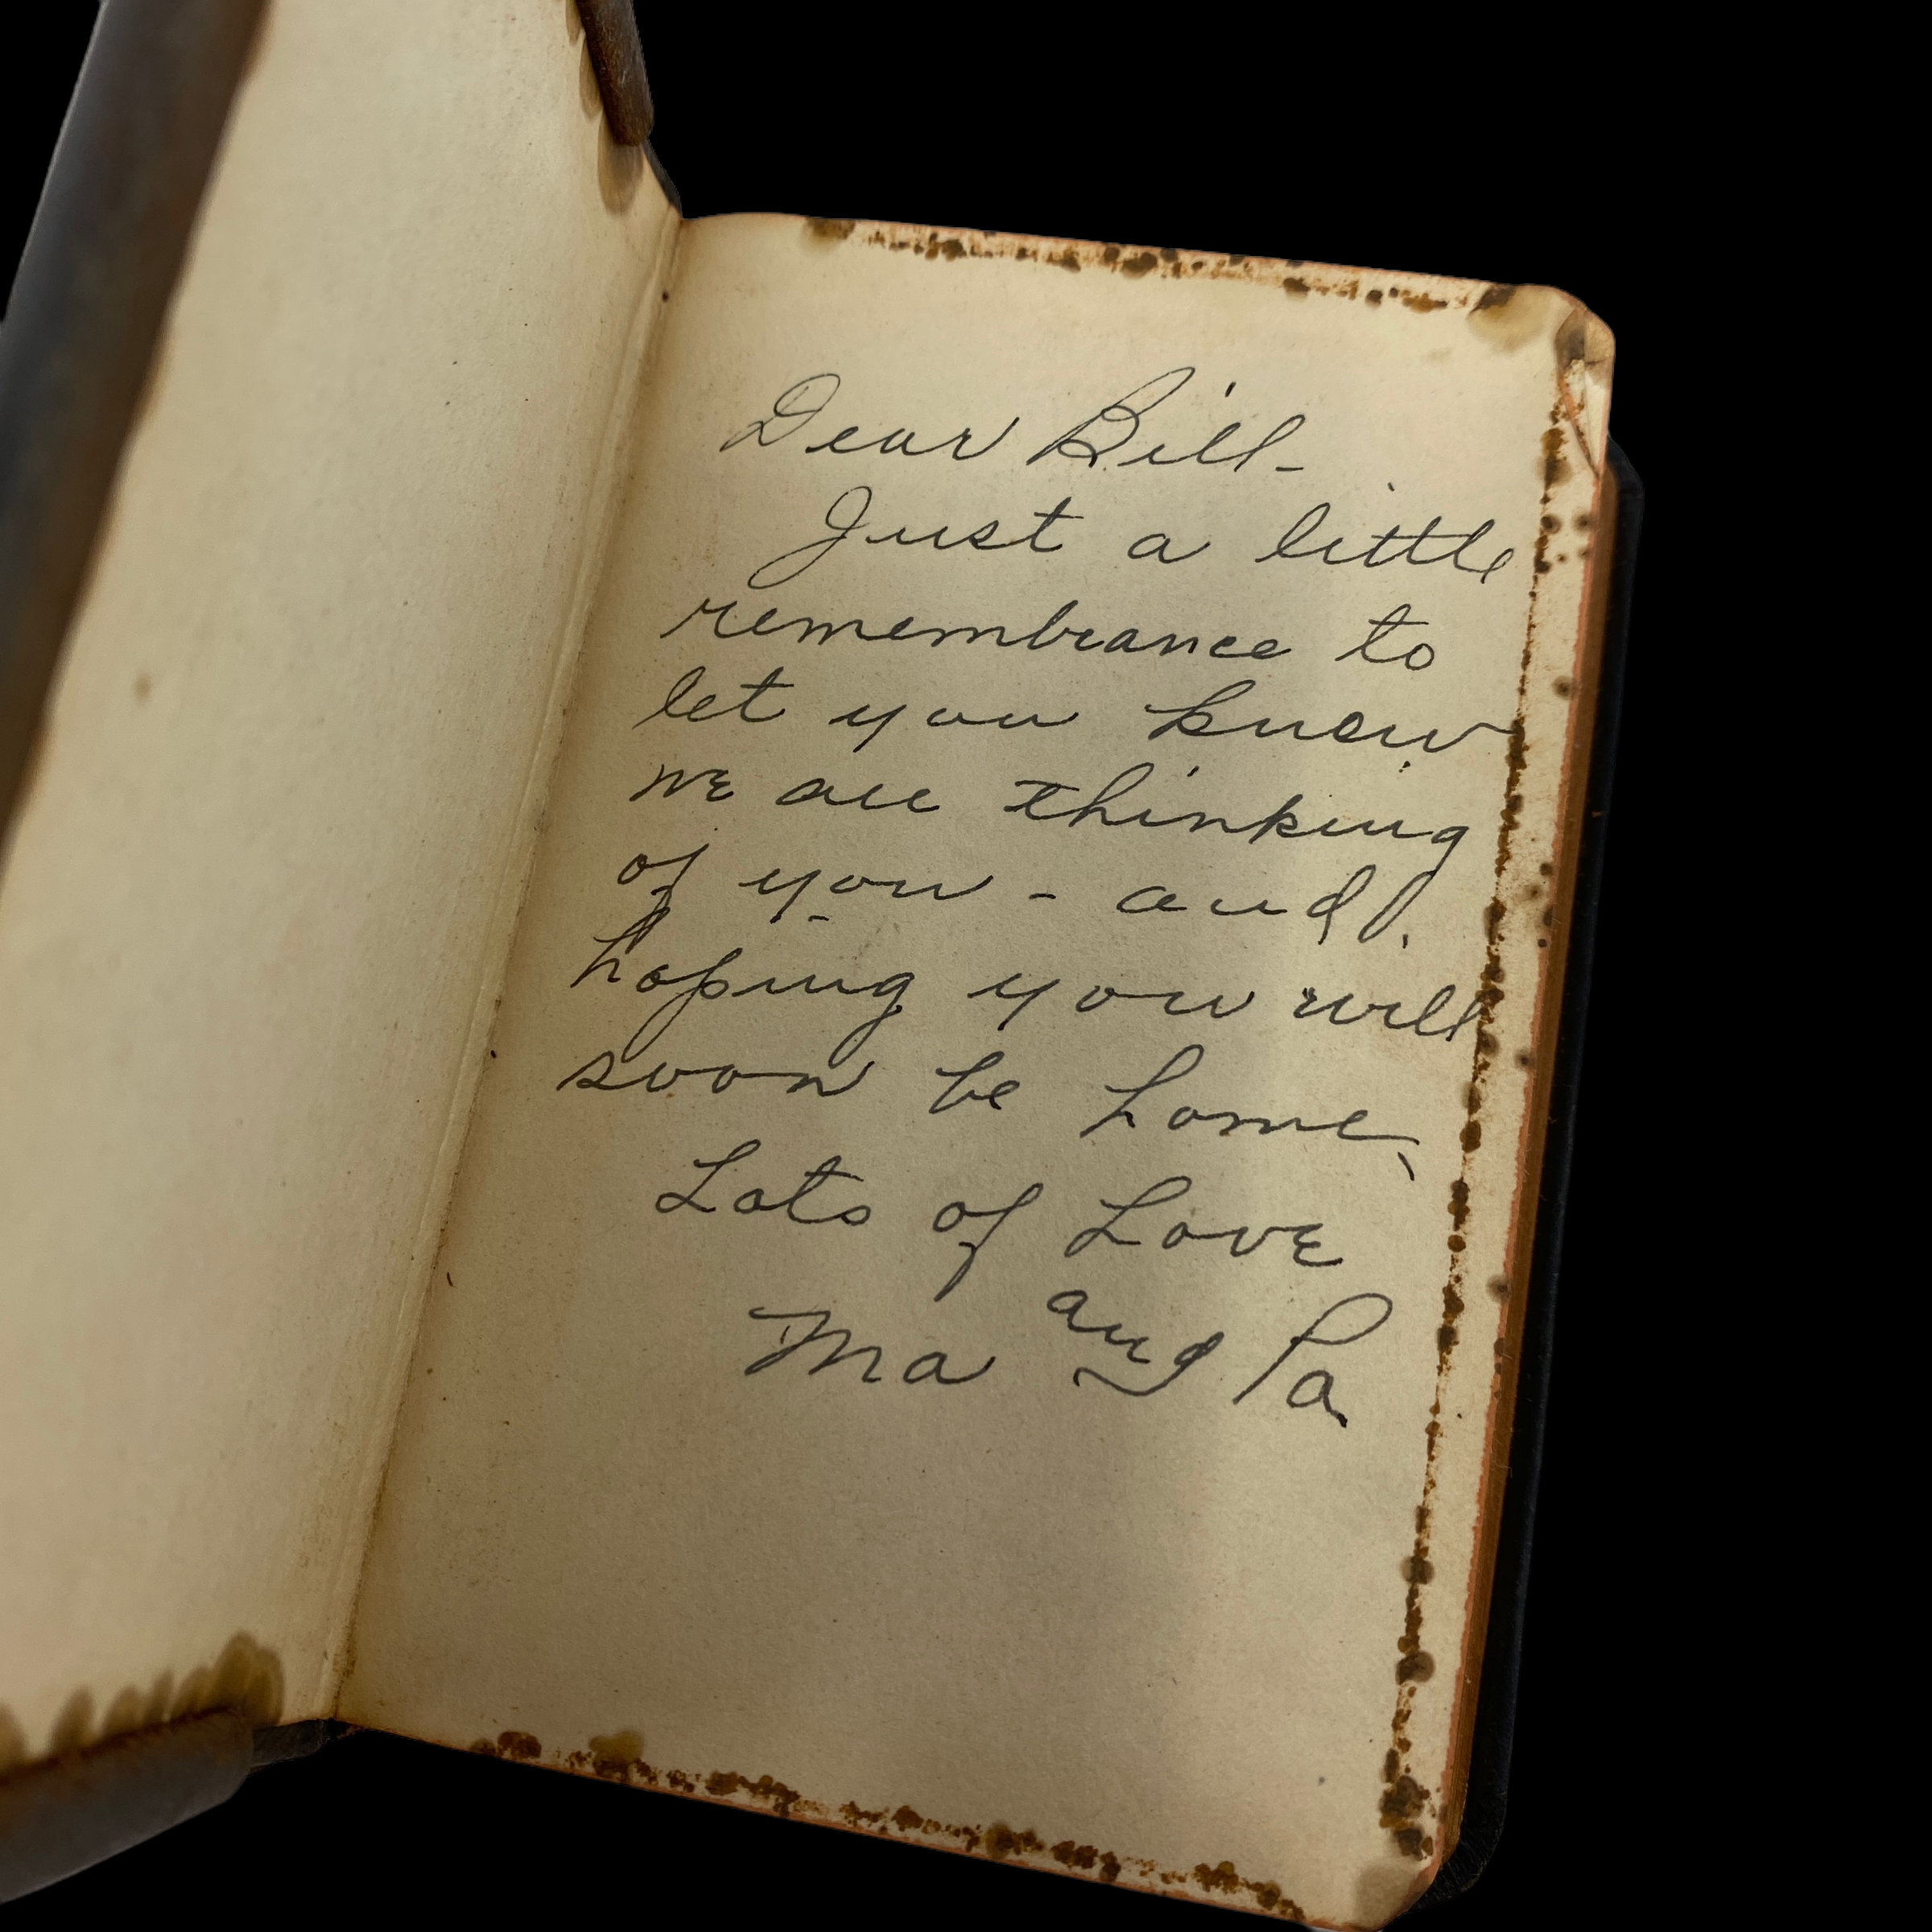 Dear Bill-
Just a little
remembrance to
let you know
we are thinking
of you - and
hoping you will
soon be home,
Lots of Love
Ma and Pa